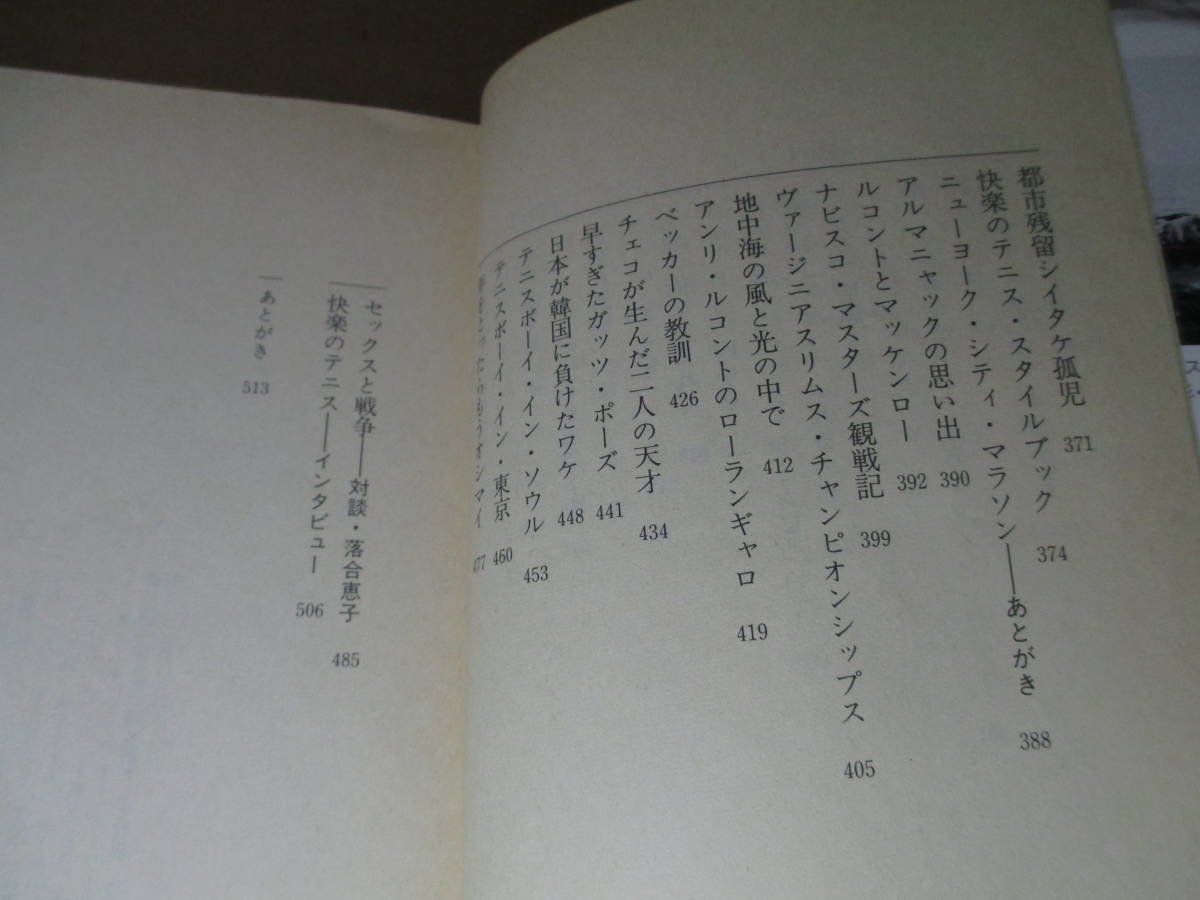 都市残留シイタケ孤児 371
快楽のテニス・スタイルブック 374
ニューヨーク・シティ・マラソン――あとがき 388
アルマニャックの思い出 390
ルコントとマッケンロー 392
ナビスコ・マスターズ観戦記 399
ヴァージニアスリムス・チャンピオンシップス 405
地中海の風と光の中で 412
アンリ・ルコントのローランギャロ 419
ベッカーの教訓 426
チェコが生んだ二人の天才 434
早すぎたガッツ・ポーズ 441
日本が韓国に負けたワケ 448
テニスボーイ・イン・ソウル 453
テニスボーイ・イン・東京 460
たらもうオシマイ 477
セックスと戦争――対談・落合恵子 485
快楽のテニス――インタビュー 506
あとがき 513